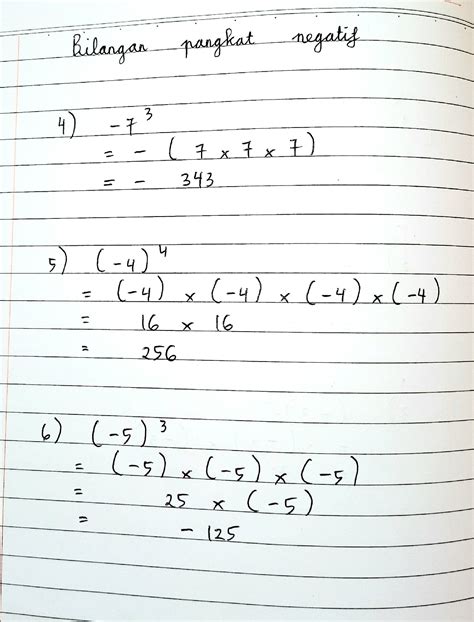 Bilangan pangkat negatif
4) -7³
= - ( 7 x 7 x 7)
= - 343
5) (-4)⁴
= (-4) x (-4) x (-4) x (-4)
= 16 x 16
= 256
6) (-5)³
= (-5) x (-5) x (-5)
= 25 x (-5)
= - 125